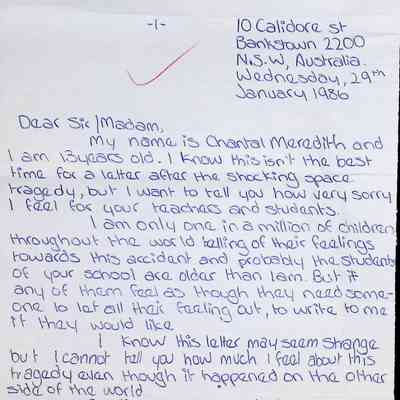 -1-
10 Calidore st
Bankstown 2200
N.S.W, Australia.
Wednesday, 29th
January 1986
Dear Sir/Madam,
My name is Chantal Meredith and
I am 13 years old. I know this isn't the best
time for a letter after the shocking space
tragedy, but I want to tell you how very sorry
I feel for your teachers and students.
I am only one in a million of children
throughout the world telling of their feelings
towards this accident and probably the students
of your school are older than I am. But if
any of them feel as though they need some-
one to let all their feeling out, to write to me
if they would like.
I know this letter may seem strange
but I cannot tell you how much I feel about this
tragedy even though it happened on the other
side of the world